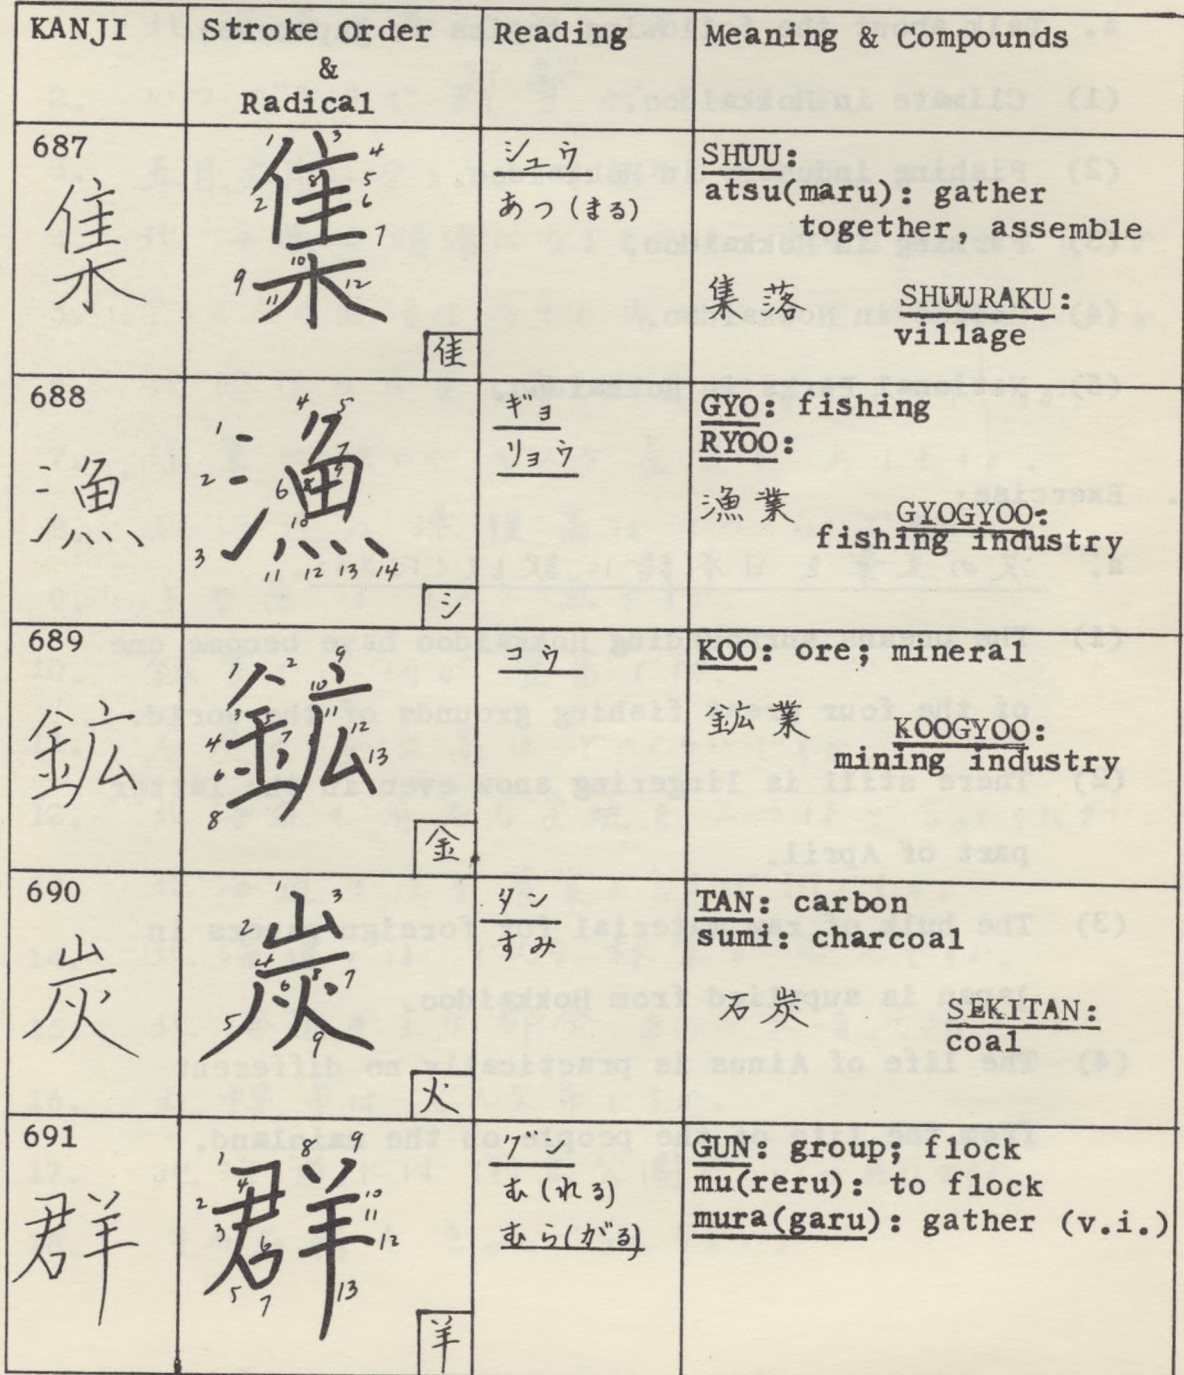 KANJI Stroke Order & Radical Reading Meaning & Compounds
687
集
集
1 2 3 4 5 6 7 8 9 10 11 12
隹
シュウ
あつ(まる)
SHUU:
atsu(maru): gather
together, assemble
集落 SHUURAKU:
village
688
漁
漁
1 2 3 4 5 6 7 8 9 10 11 12 13 14
氵
ギョ
リョウ
GYO: fishing
RYOO:
漁業 GYOGYOO:
fishing industry
689
鉱
鉱
1 2 3 4 5 6 7 8 9 10 11 12 13
金
コウ
KOO: ore; mineral
鉱業 KOOGYOO:
mining industry
690
炭
炭
1 2 3 4 5 6 7 8 9
火
タン
すみ
TAN: carbon
sumi: charcoal
石炭 SEKITAN:
coal
691
群
群
1 2 3 4 5 6 7 8 9 10 11 12 13
羊
グン
む(れる)
むら(がる)
GUN: group; flock
mu(reru): to flock
mura(garu): gather (v.i.)